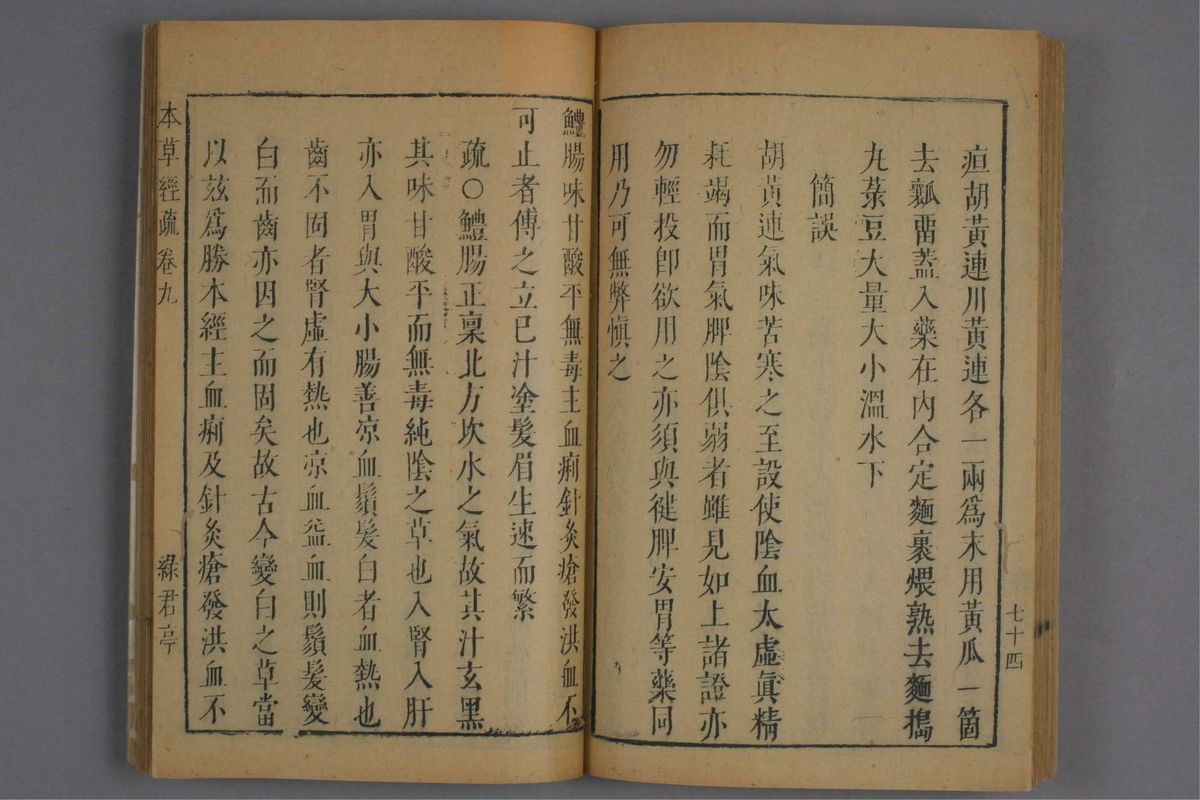 疸胡黃連川黃連各一兩爲末用黃瓜一箇
去瓤畱蓋入藥在內合定麵裹煨熟去麵搗
丸菉豆大量大小溫水下
簡誤
胡黃連氣味苦寒之至設使陰血太虛眞精
耗竭而胃氣脾陰俱弱者雖見如上諸證亦
勿輕投卽欲用之亦須與健脾安胃等藥同
用乃可無弊愼之
七十四
鱧腸味甘酸平無毒主血痢針灸瘡發洪血不
可止者傅之立已汁塗髮眉生速而繁
疏○鱧腸正稟北方坎水之氣故其汁玄黑
其味甘酸平而無毒純陰之草也入腎入肝
亦入胃與大小腸善凉血鬚髮白者血熱也
齒不固者腎虛有熱也凉血益血則鬚髮變
白而齒亦因之而固矣故古今變白之草當
以茲爲勝本經主血痢及針灸瘡發洪血不
本草經疏 卷九 綠君亭